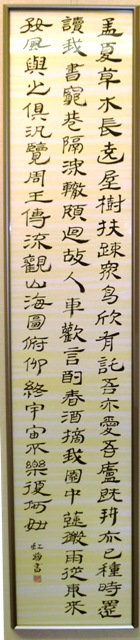 孟夏草木長遶屋樹扶疎眾鳥欣有託吾亦愛吾廬既畊亦已種時還
讀我書窮巷隔深轍頗迴故人車歡言酌春酒摘我園中蔬微雨從東來
好風與之俱汎覽周王傳流觀山海圖俯仰終宇宙不樂復何如